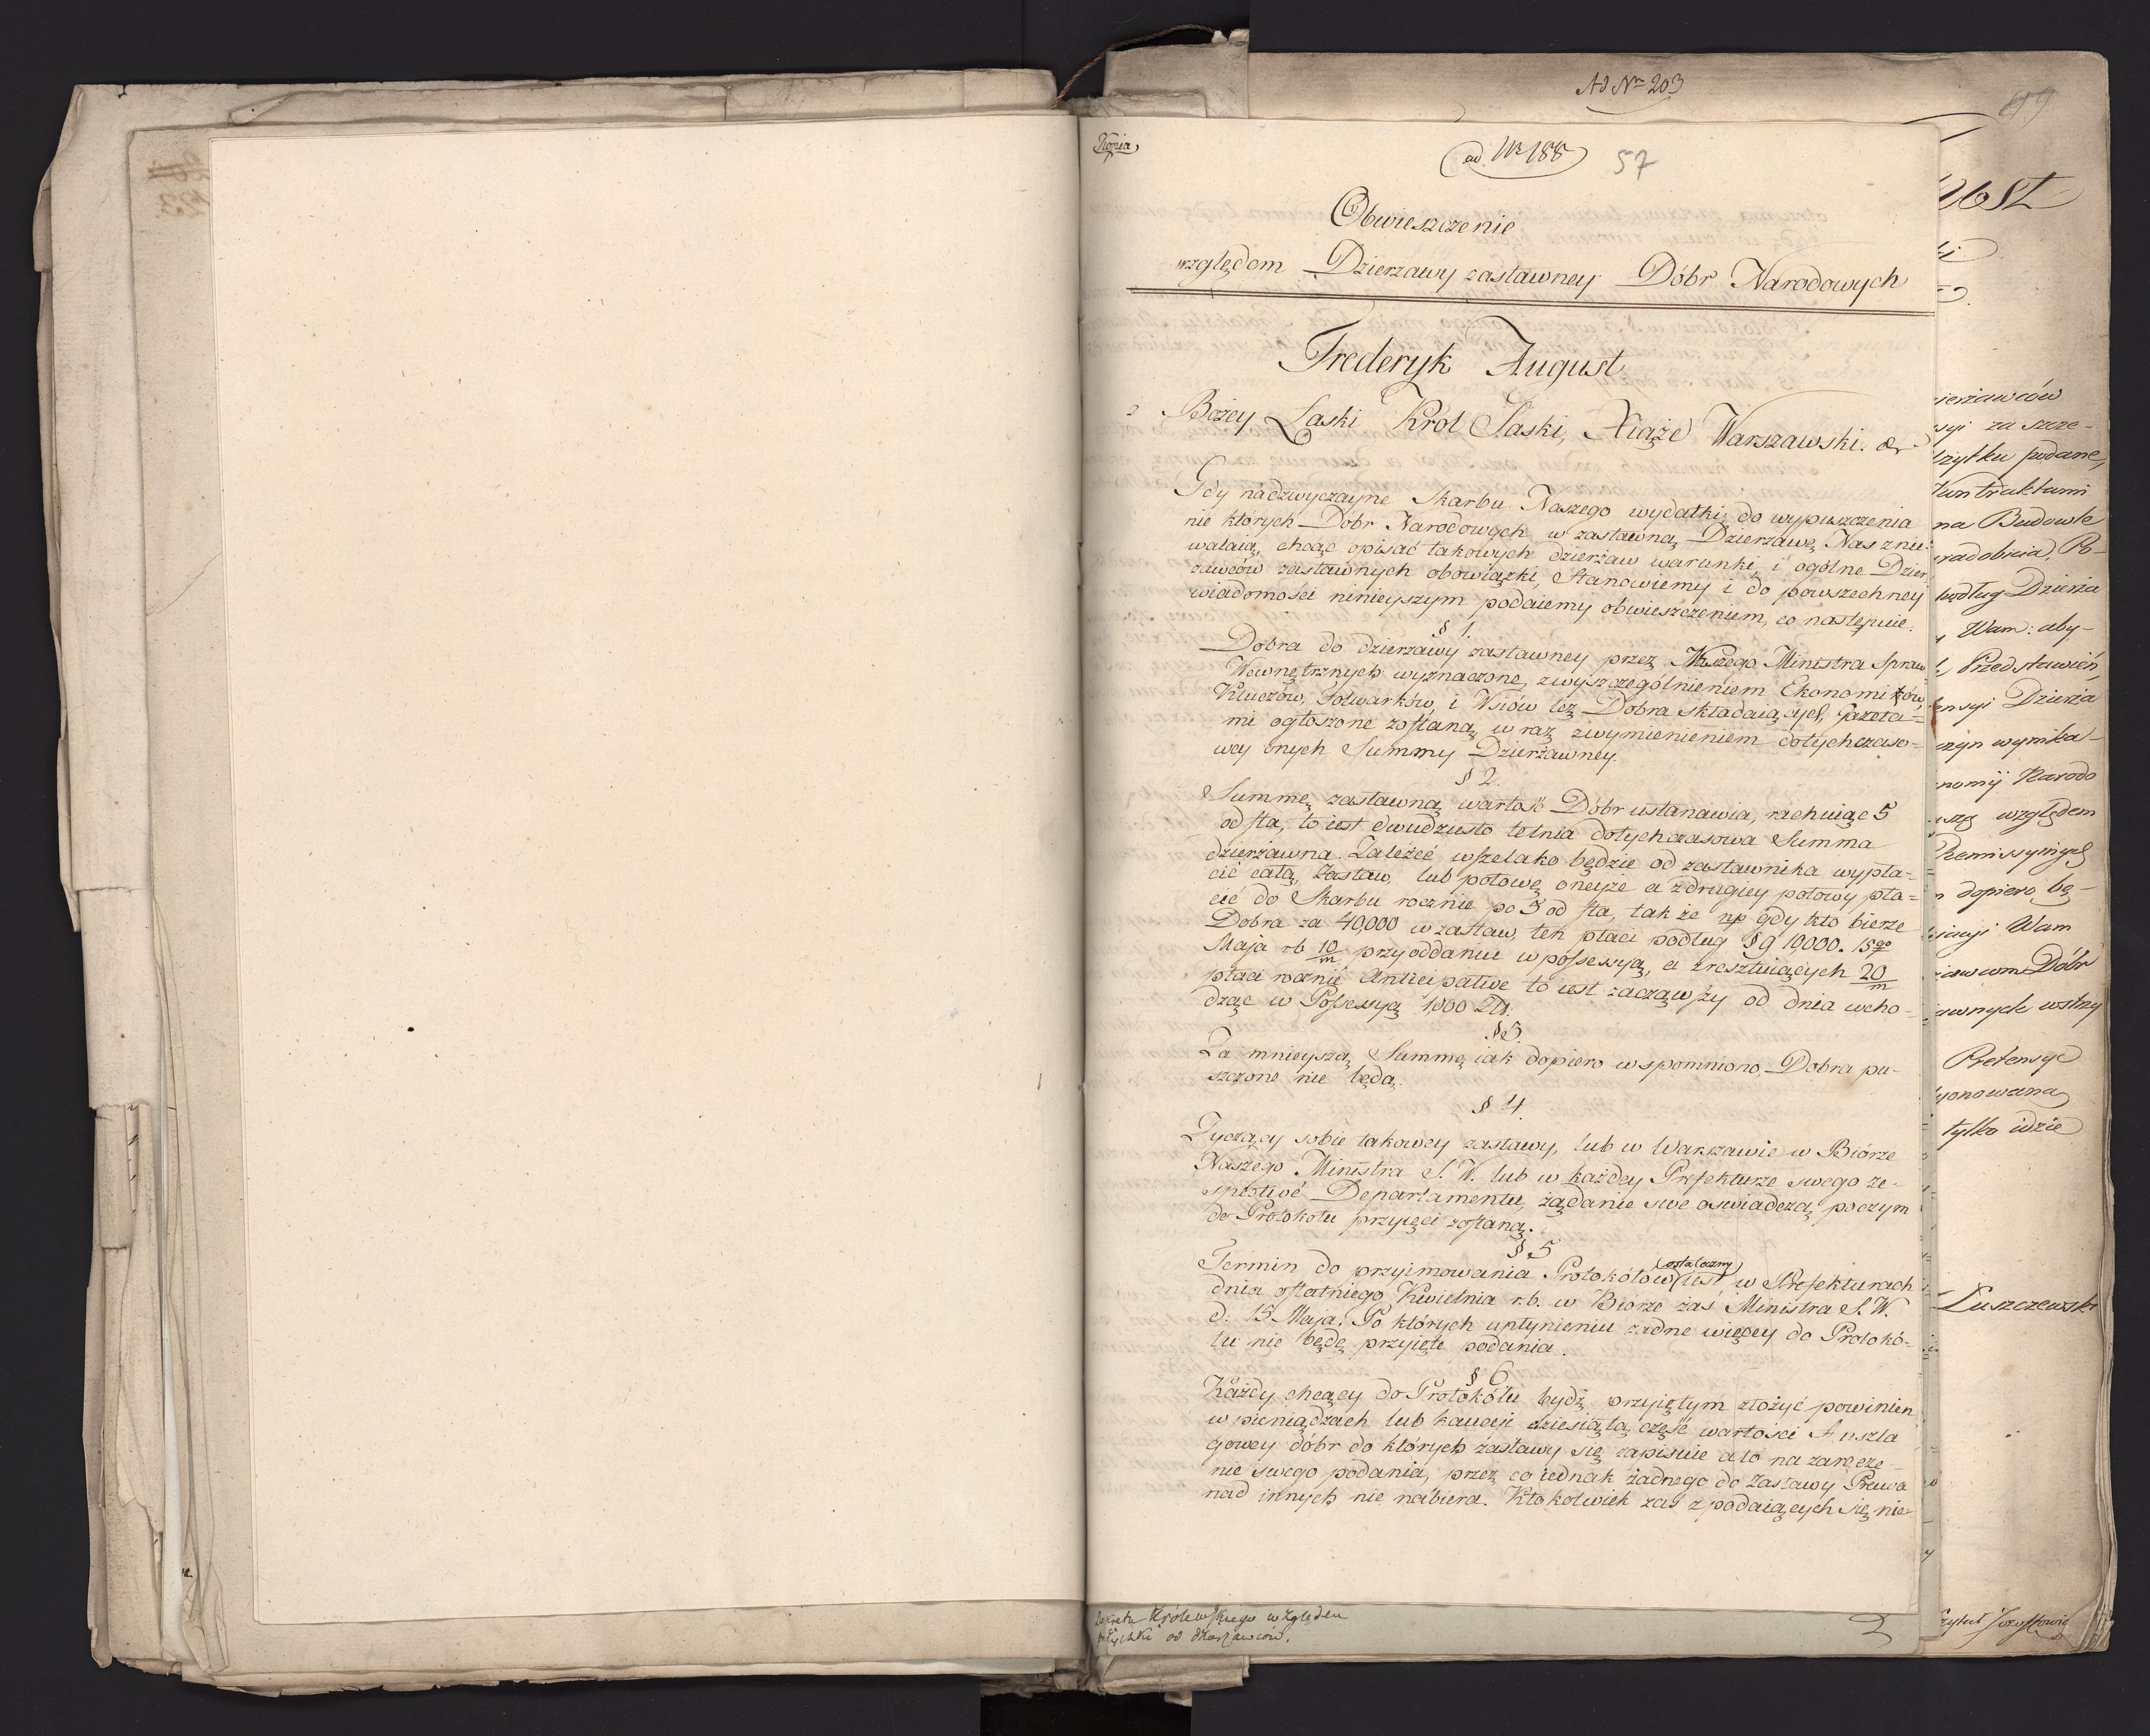 Ad Nrᵒ 203
Kopia
ad Nr 188
57
Obwieszczenie
względem Dzierzawy zastawney Dóbr Narodowych
Frederyk August
z Bożey Łaski Król Saski, Xiąże Warszawski. &
Gdy nadzwyczayne Skarbu Naszego wydatki do wypuszczenia
nie których Dobr Narodowych w zastawną Dzierzawę Nas zniе-
walaią, chcąc opisać takowych dzierżaw warunki, i ogólne Dzier
zawców zastawnych obowiązki, Stanowiemy i do powszechney
wiadomości ninieyszym podaiemy obwieszczeniem, co następuie.
§ 1.
Dobra do dzierzawy zastawney przez Naszego Ministra Spraw
Wewnętrznych wyznaczone, z wyszczególnieniem Ekonomików,
Kluczów, Folwarków, i Wsiów też Dobra składaiących, Gazeta=
mi ogłoszone zostaną wraz z wymienieniem dotychczaso=
wey onych Summy Dzierżawney.
§ 2.
Summę zastawną wartość Dóbr ustanawia, rachuiąc 5
od sta, to iest dwudziesto letnia dotychczasowa Summa
dzierżawna. Zależeć wszelako będzie od zastawnika wypła-
cić całą Zastaw, lub połowę oneyże a z drugiey połowy pła=
cić do Skarbu rocznie po 5 od sta, tak że np gdy kto bierze
Dobra za 40,000 w zastaw, ten płaci podług § 9 10,000. 15go
Maja rb 10/m przy oddaniu w possessyą, a z resztuiących 20/m
płaci rocznie Anticipative to iest zacząwszy od dnia wcho-
dząc w Possessyą 1,000 Zł.
§ 3.
Za mnieyszą Summę iak dopiero wspomniono, Dobra pu-
szczone nie będą.
§ 4.
Życzący sobie takowey zastawy, lub w Warszawie w Biórze
Naszego Ministra S. W. lub w każdey Prefekturze swego re-
spective Departamentu, żądanie swe oswiadczą, poczym
do Protokołu przyięci zostaną.
§ 5
Termin do przyimowania Protokółów (ostateczny) iest w Prefekturach
dnia ostatniego Kwietnia r.b. w Biórze zaś Ministra S. W.
d. 15 Maja. Po których upłynieniu żadne więcey do Protokó-
łu nie będę przyięte podania.
§ 6
Każdy chcący do Protokółu bydź przyiętym złożyć powinien
w pieniądzach lub kaucyi dziesiątą część wartości Anszla
gowey dóbr do których zastawy się zapisuie a to na zaręcze-
nie swego podania, przez co iednak żadnego do Zastawy Prawa
nad innych nie nabiera. Ktokolwiek zaś z podaiących się nie-
względem
Wam
tylko idzie
Łuszczewski
Dekretu Królewskiego względem
pożyczki od dzierżawców.